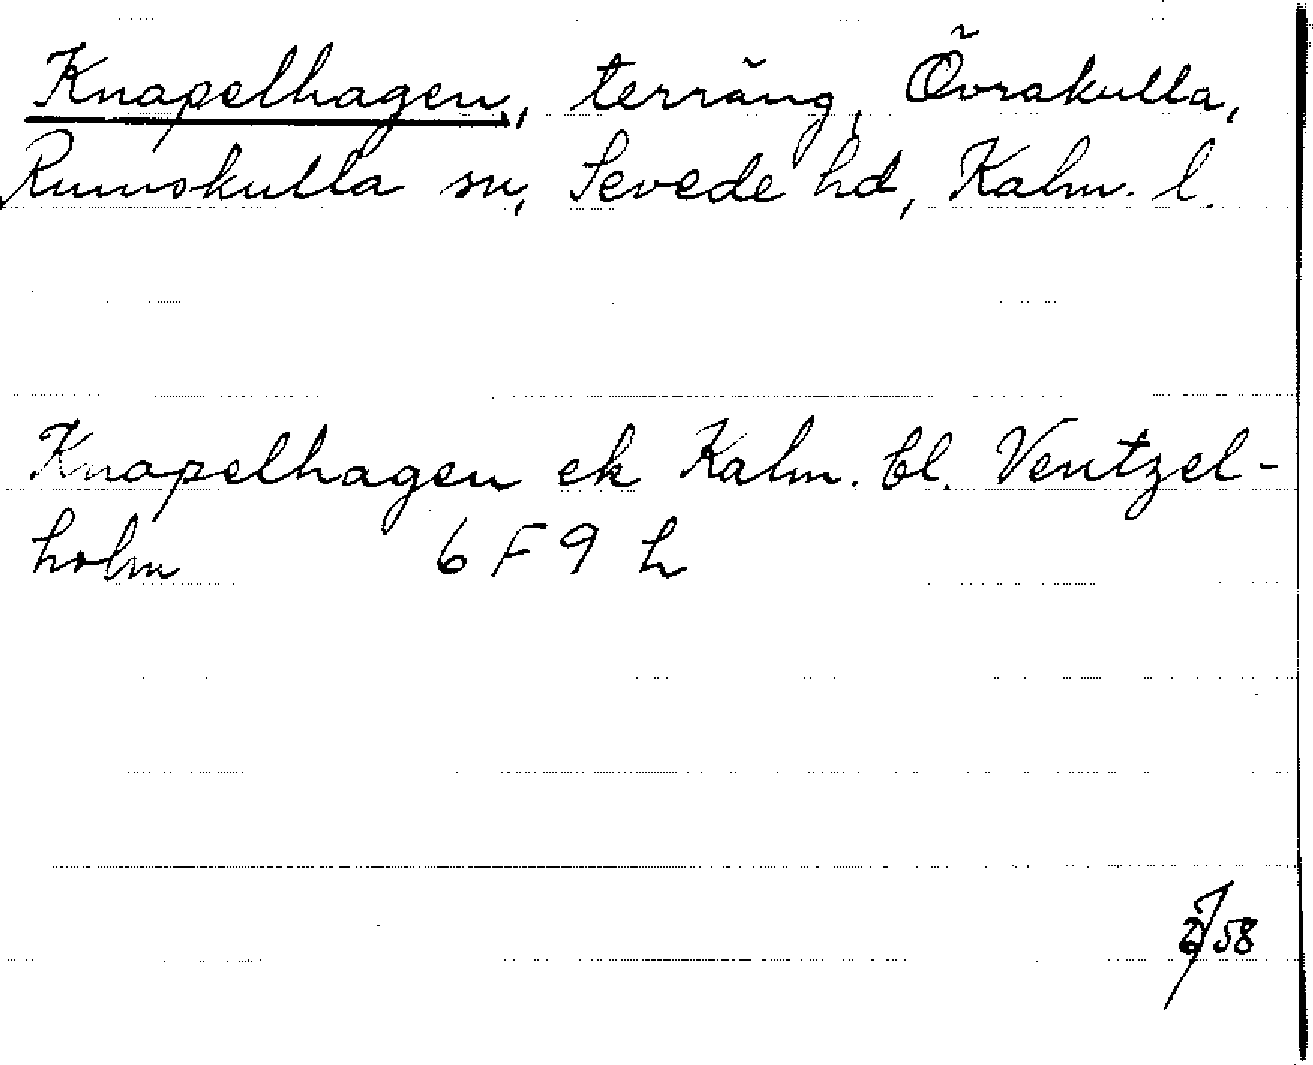 Knapelhagen, terräng, Övrakulla,
Rumskulla sn, Sevede hd, Kalm. l.
Knapelhagen ek Kalm. bl. Ventzel-
holm 6 F 9 h
58